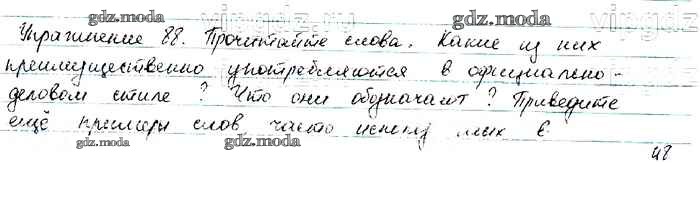 gdz.moda gdz.moda
vipgdz.ru vipgdz
Упражнение 88. Прочитайте слова. Какие из них
преимущественно употребляются в официально-
деловом стиле? Что они обозначают? Приведите
ещё примеры слов часто
gdz.moda gdz.moda gdz.moda
48